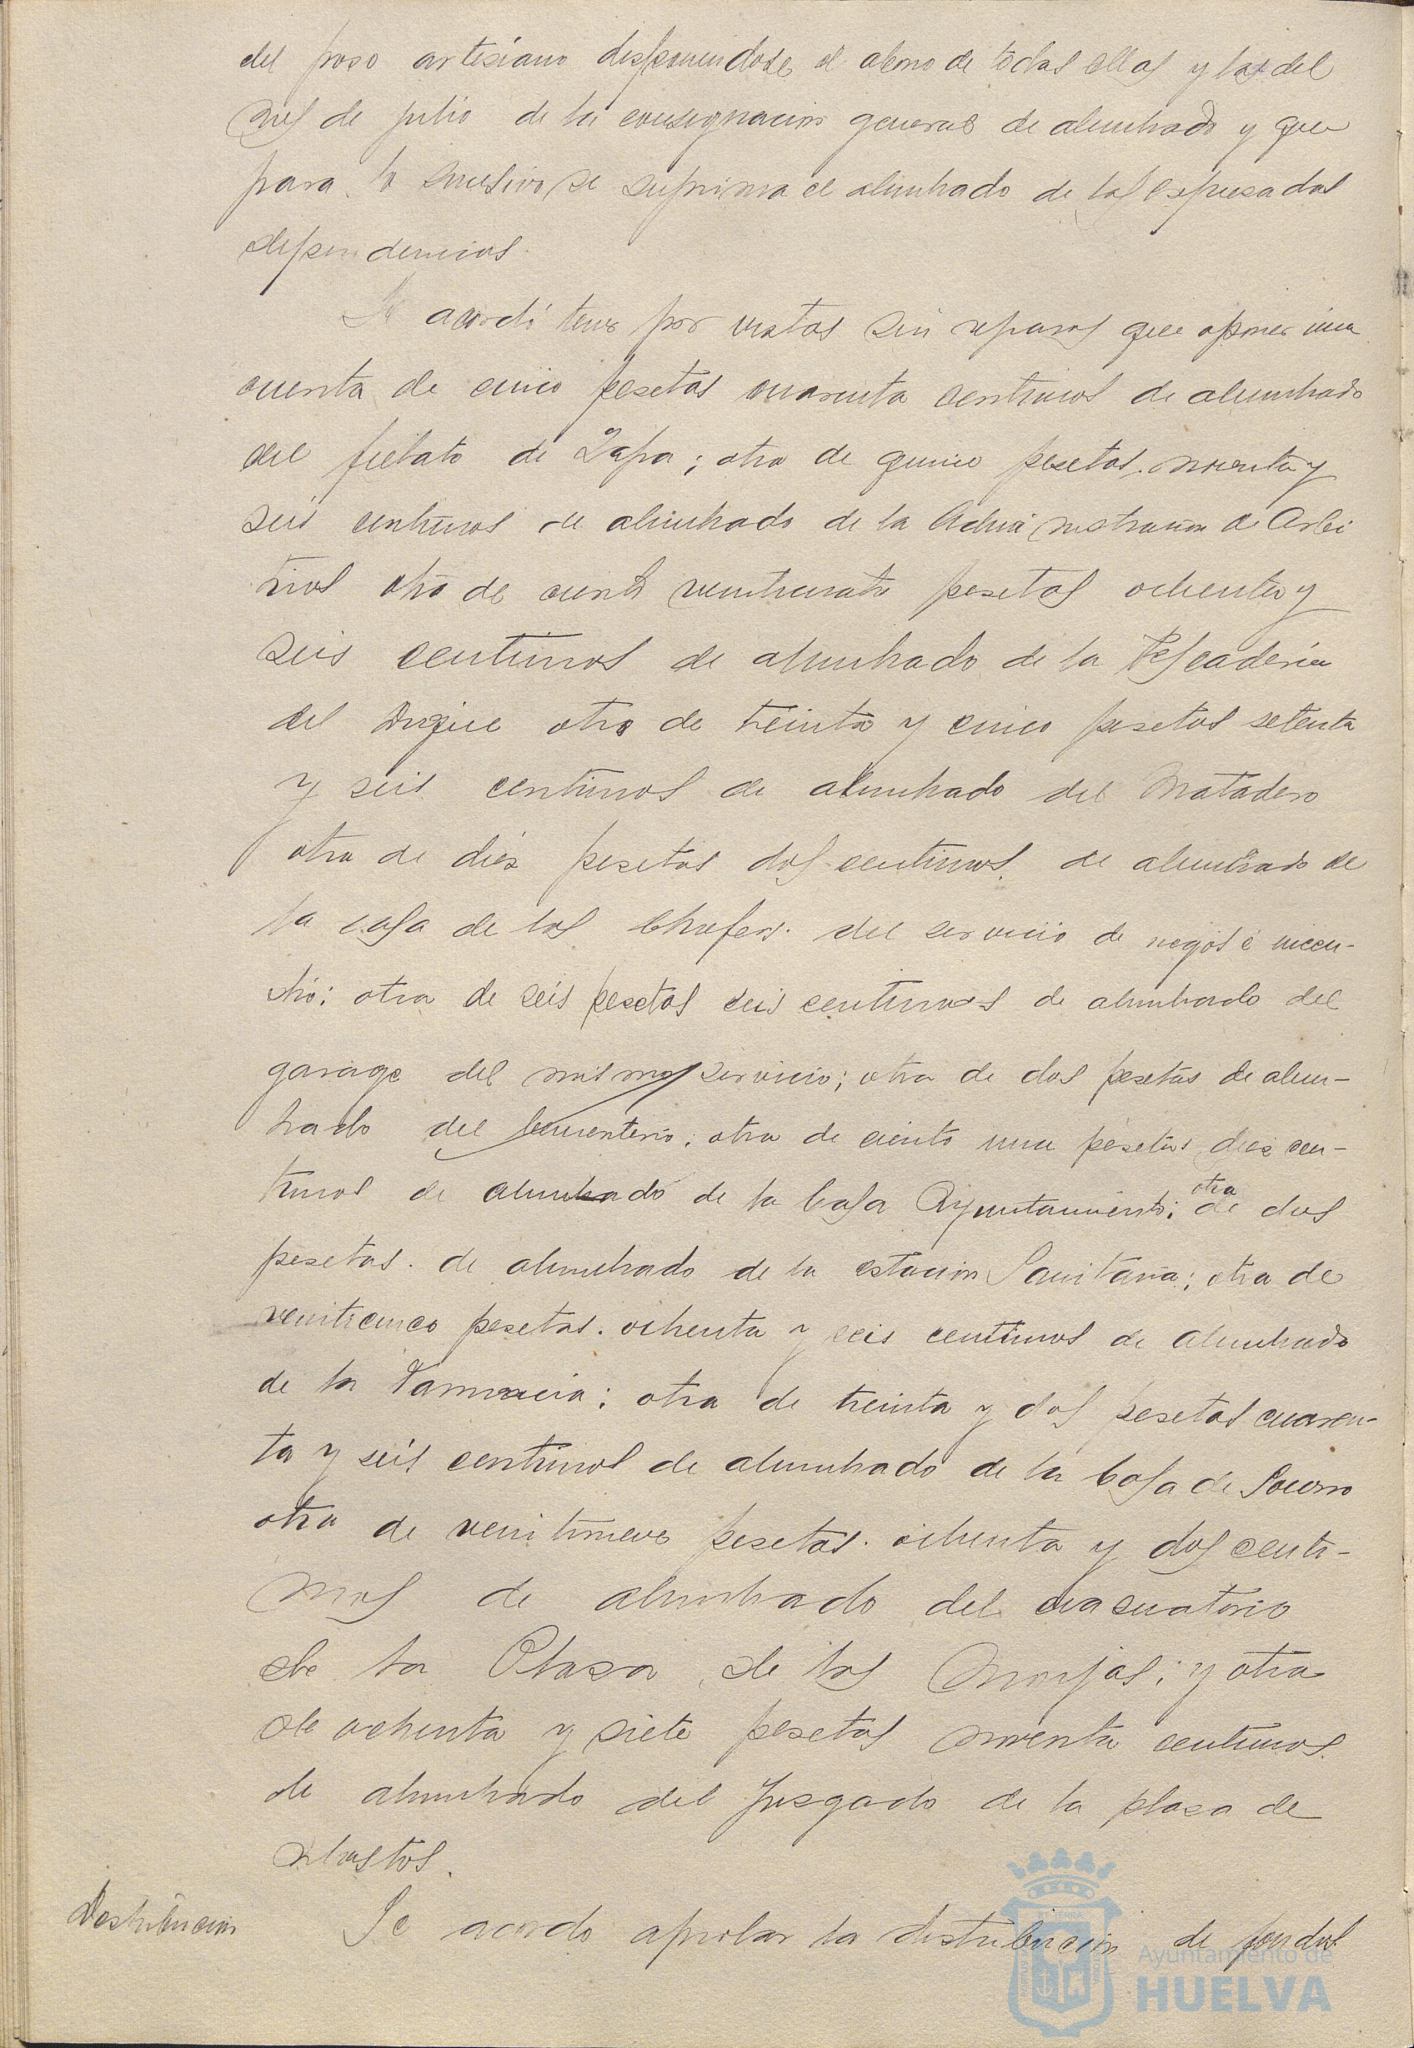 del poso artesiano disponiendose el abono de todas ellas y las del
mes de julio de la consignacion general de alumbrado y que
para lo sucesivo se suprima el alumbrado de las expresadas
dependencias.
Se acordó tener por vistas sin reparos que oponer una
cuenta de cinco pesetas cuarenta centimos de alumbrado
del fielato de Zafra; otra de quince pesetas noventa y
seis centimos de alumbrado de la Administracion de Arbi
trios otra de ciento veinticuatro pesetas ochenta y
seis centimos de alumbrado de la Pescaderia
del Dique otra de treinta y cinco pesetas setenta
y seis centimos de alumbrado del Matadero
otra de diez pesetas dos centimos de alumbrado de
la casa de los Chofers. del servicio de riegos é incen-
dio; otra de seis pesetas seis centimos de alumbrado del
garage del mismo servicio; otra de dos pesetas de alum-
brado del Cementerio; otra de ciento una pesetas diez cen-
timos de alumbrado de la Casa Ayuntamiento; otra de dos
pesetas. de alumbrado de la estacion Sanitaria; otra de
veinticinco pesetas. ochenta y seis centimos de alumbrado
de la Farmacia; otra de treinta y dos pesetas cuaren-
ta y seis centimos de alumbrado de la Casa de Socorro
otra de veintinueve pesetas. ochenta y dos centi-
mos de alumbrado del evacuatorio
de la Plasa de las Monjas; y otra
de ochenta y siete pesetas noventa centimos
de alumbrado del Jusgado de la plasa de
abastos.
Distribucion Se acordo aprobar la distribucion de fondos
Ayuntamiento de
HUELVA